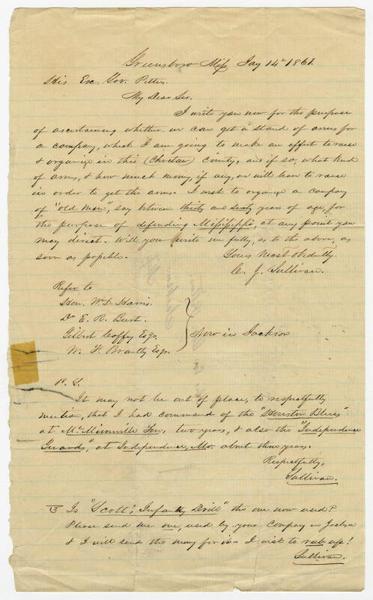 Greensboro Miss, Jany 14th 1861.
His Exc. Gov. Pettus.
My Dear Sir.
I write you now for the purpose
of ascertaining whether we can get a stand of arms for
a company, which I am going to make an effort to raise
& organize in this (Choctaw) county, and if so, what kind
of arms, & how much money, if any, we will have to raise
in order to get the arms. I wish to organize a company
of "old men", say between thirty and sixty years of age, for
the purpose of defending Mississippi, at any point you
may direct. Will you write me fully, as to the above, as
soon as possible.
Yours Most Obdtly
C. J. Sullivan.
Refer to
Hon. W. D. Harris.
Dr E. R. Burt.
Gilbert Coffey Esqr.
W. F. Brantly Esqr.
Now in Jackson
P. S.
It may not be out of place, to respectfully
mention, that I had command of the "Houston Blues"
at McMinnville Ten, two years, & also the "Independence
Guards", at Independence, Mo. about three years.
Respectfully,
Sullivan.
Is "Scott's Infantry Drill" the one now used?
Please send me one, used by your company in Jackson
& I will send the money for it. I wish to rub up!
Sullivan.